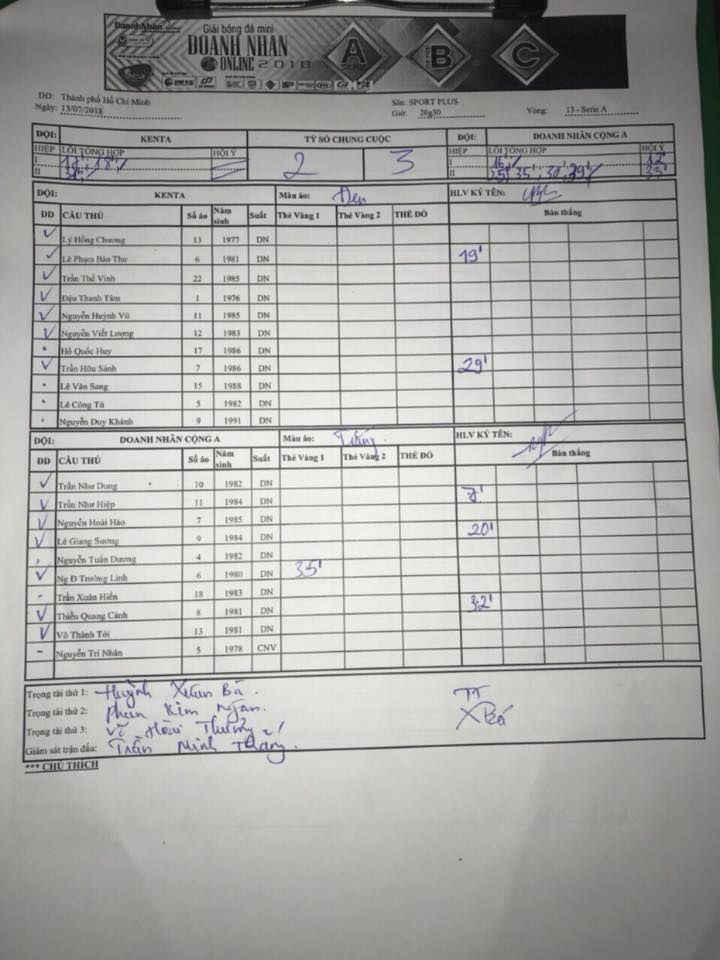 DoanhNhân
Giải bóng đá mini
DOANH NHÂN
ONLINE 2018
A B C
DĐ: Thành phố Hồ Chí Minh
Ngày: 13/07/2018
Sân: SPORT PLUS
Giờ: 20g30
Vòng: 13 - Serie A
ĐỘI: KENTA TỶ SỐ CHUNG CUỘC ĐỘI: DOANH NHÂN CỘNG A
HIỆP LỖI TỔNG HỢP HỘI Ý 2 3 HIỆP LỖI TỔNG HỢP HỘI Ý
I 18' I 16' 12'
II II 25' 35' 30' 29' 35'
ĐỘI: KENTA Màu áo: Đen HLV KÝ TÊN:
DD CẦU THỦ Số áo Năm sinh Suất Thẻ Vàng 1 Thẻ Vàng 2 THẺ ĐỎ Bàn thắng
Lý Hồng Chương 13 1977 DN
Lê Phạm Bảo Thư 6 1981 DN 19'
Trần Thế Vinh 22 1985 DN
Đậu Thanh Tâm 1 1976 DN
Nguyễn Huỳnh Vũ 11 1985 DN
Nguyễn Viết Lượng 12 1983 DN
Hồ Quốc Huy 17 1986 DN
Trần Hữu Sánh 7 1986 DN 29'
Lê Văn Sang 15 1988 DN
Lê Công Tú 5 1982 DN
Nguyễn Duy Khánh 9 1991 DN
ĐỘI: DOANH NHÂN CỘNG A Màu áo: Trắng HLV KÝ TÊN:
DD CẦU THỦ Số áo Năm sinh Suất Thẻ Vàng 1 Thẻ Vàng 2 THẺ ĐỎ Bàn thắng
Trần Như Dung 10 1982 DN
Trần Như Hiệp 11 1984 DN
Nguyễn Hoài Hảo 7 1985 DN
Lê Giang Sương 9 1984 DN 20'
Nguyễn Tuấn Dương 4 1982 DN
Ng Đ Trường Linh 6 1980 DN 35'
Trần Xuân Hiền 18 1983 DN
Thiều Quang Cảnh 8 1981 DN 32'
Võ Thành Tới 13 1981 DN
Nguyễn Tri Nhân 5 1978 CNV
Trọng tài thứ 1: Huỳnh Xuân Bá. TT
Trọng tài thứ 2: Phan Kim Ngân. XBá
Trọng tài thứ 3: Võ Hoài Thương
Giám sát trận đấu: Trần Minh
*** CHÚ THÍCH